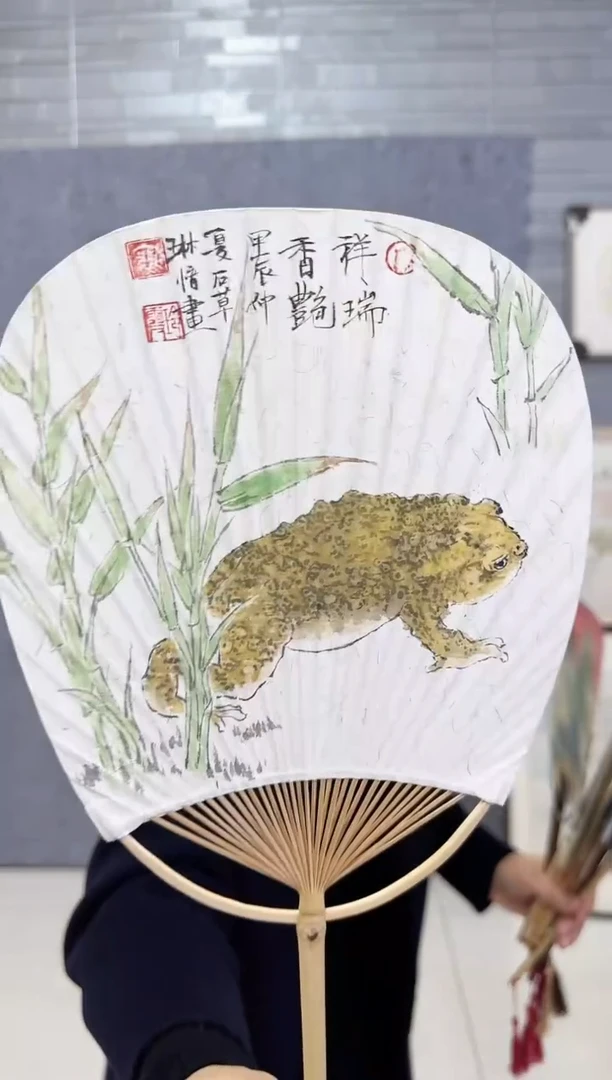 祥瑞
香艷
甲辰仲
夏石草
琳愔畫